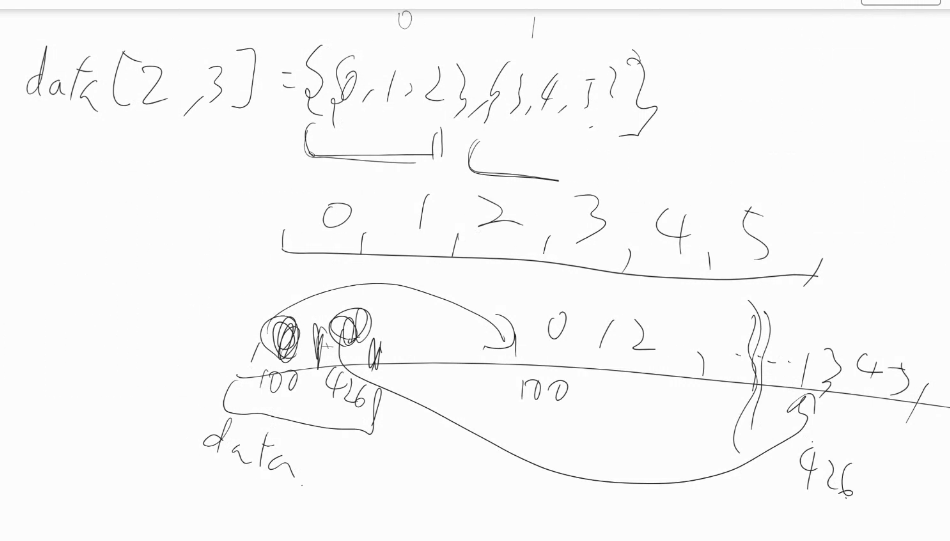 0 1
data[2,3] = {{0,1,2},{3,4,5}}
0, 1, 2, 3, 4, 5
0 1 2 3 4 5
100 426 100
data 426